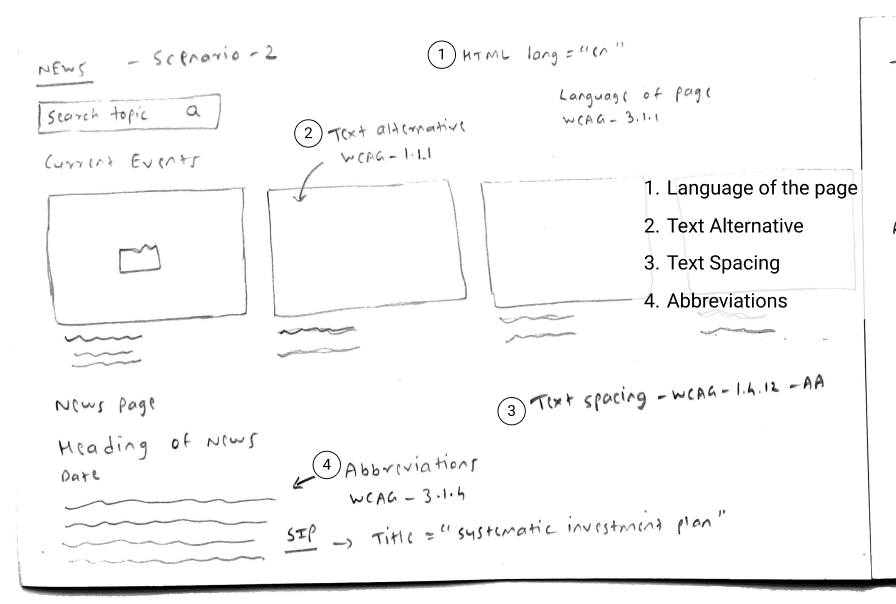 NEWS - Scenario - 2
1 HTML lang = "en"
Search topic
Language of page
WCAG - 3.1.1
2 Text alternative
WCAG - 1.1.1
Current Events
1. Language of the page
2. Text Alternative
3. Text Spacing
4. Abbreviations
3 Text spacing - WCAG - 1.4.12 - AA
News Page
Heading of News
Date
4 Abbreviations
WCAG - 3.1.4
SIP -> Title = "systematic investment plan"